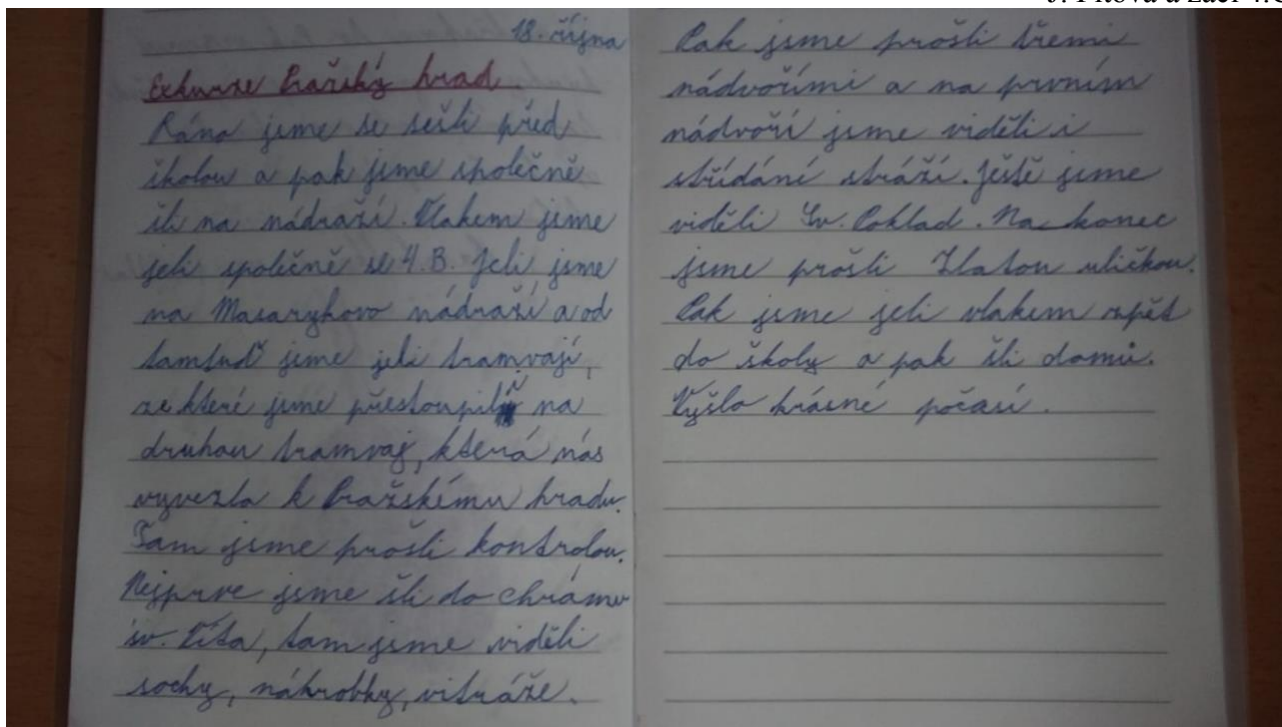 18. října
Exkurze Pražský hrad
Ráno jsme se sešli před
školou a pak jsme společně
šli na nádraží. Vlakem jsme
jeli společně se 4. B. Jeli jsme
na Masarykovo nádraží a od
tamtuď jsme jeli tramvají,
ze které jsme přestoupili na
druhou tramvaj, která nás
vyvezla k Pražskému hradu.
Tam jsme prošli kontrolou.
Nejprve jsme šli do chrámu
sv. Víta, tam jsme viděli
sochy, náhrobky, vitráže.
Pak jsme prošli třemi
nádvořími a na prvním
nádvoří jsme viděli i
střídání stráží. Ještě jsme
viděli Sv. Poklad. Na konec
jsme prošli Zlatou uličkou.
Pak jsme jeli vlakem zpět
do školy a pak šli domů.
Vyšlo krásné počasí.